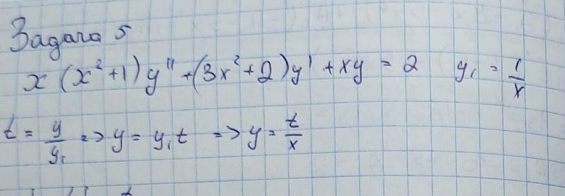 Задача 5
x (x²+1) y'' + (3x²+2) y' + xy = 2   y₁ = 1/x
t = y/y₁ => y = y₁t => y = t/x